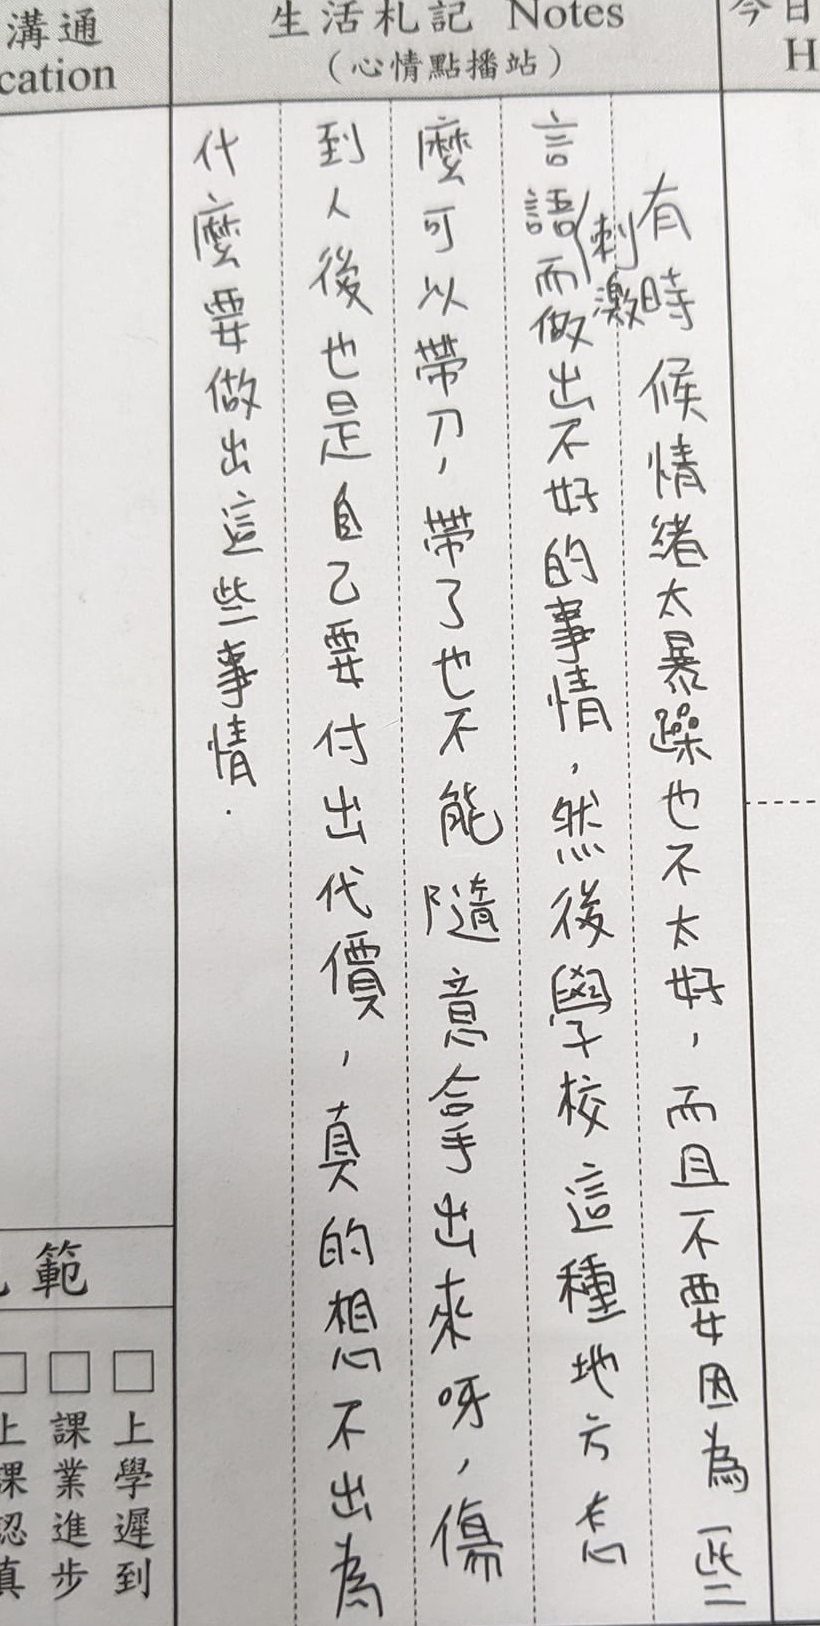 溝通
cation
生活札記 Notes
（心情點播站）
今日
H
有時候情緒太暴躁也不太好，而且不要因為一些
言語刺激而做出不好的事情，然後學校這種地方怎
麼可以帶刀，帶了也不能隨意拿出來呀，傷
到人後也是自己要付出代價，真的想不出為
什麼要做出這些事情．
範
□上學遲到
□課業進步
□上課認真